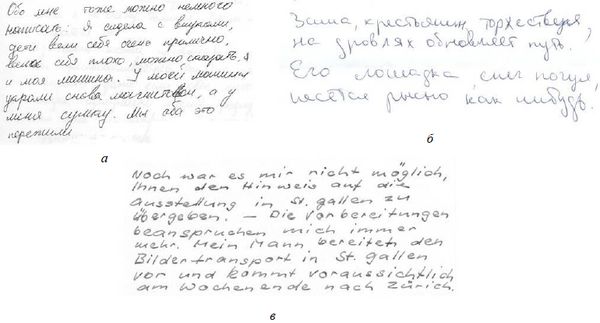 Обо мне тоже можно немного
написать: я сидела с внуками,
дети вели себя очень прилично,
вела себя плохо, можно сказать, я
и моя машины. У моей машины
украли снова магнитофон, а у
меня сумку. Мы оба это
пережили
а
Зима, крестьянин, торжествуя,
на дровлях обновляет путь.
Его лошадка, снег почуя,
несётся рысью как нибудь.
б
Noch war es mir nicht möglich,
Ihnen den Hinweis auf die
Ausstellung in St. gallen zu
übergeben. – Die Vorbereitungen
beanspruchen mich immer
mehr. Mein Mann bereitet den
Bildertransport in St. gallen
vor und kommt voraussichtlich
am Wochenende nach Zürich.
в